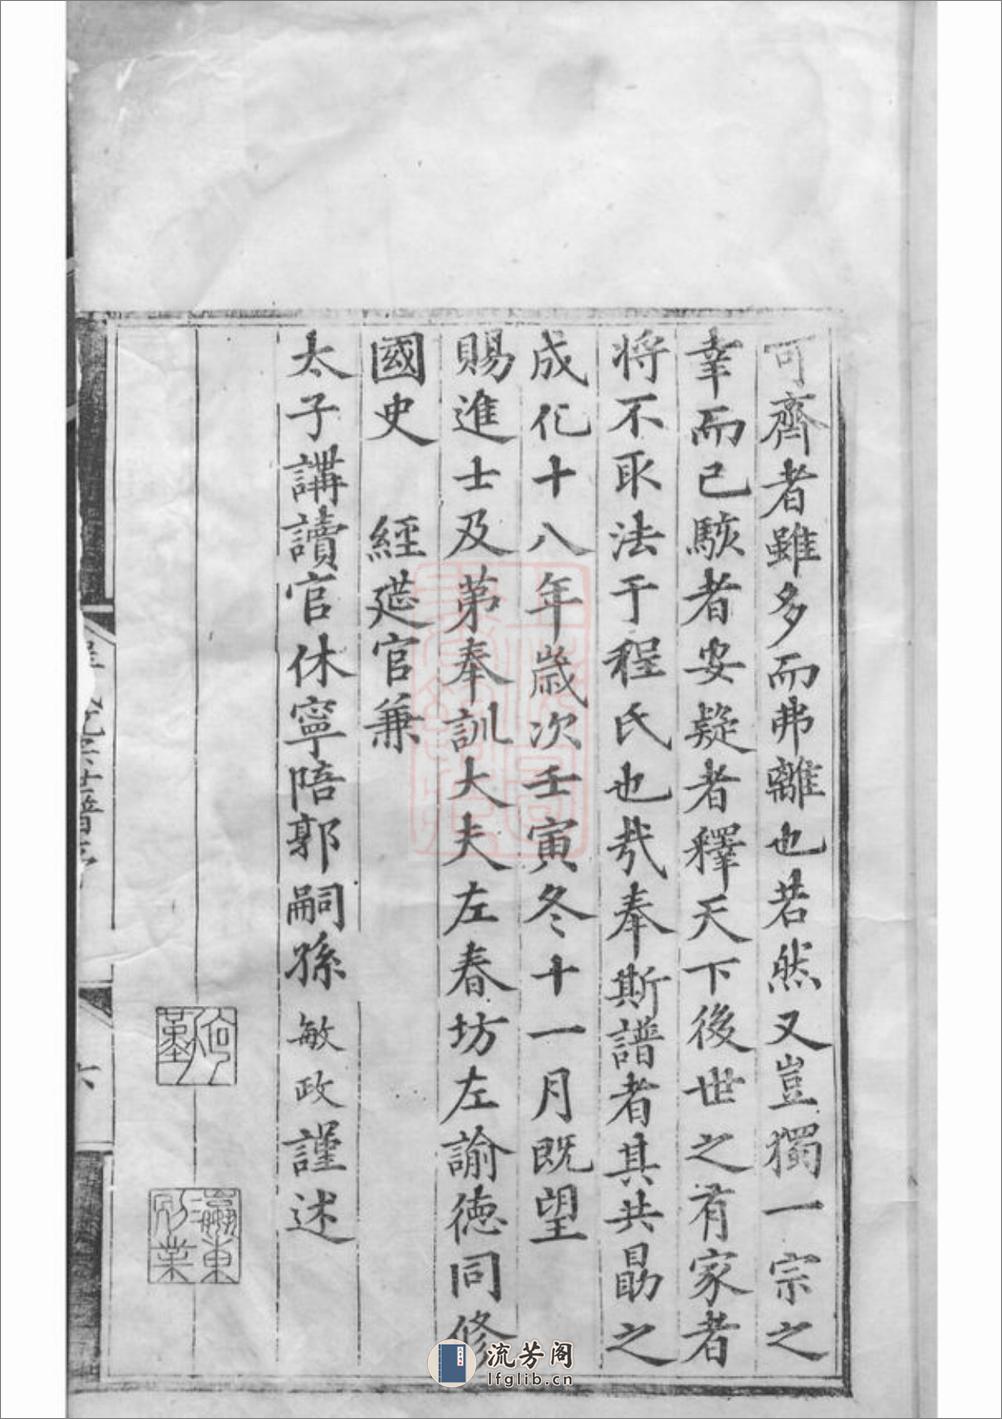 可齊者雖多而弗離也若然又豈獨一宗之
幸而已駭者安疑者釋天下後世之有家者
将不取法于程氏也㢤奉斯譜者其共勗之
成化十八年歲次壬寅冬十一月既望
賜進士及第奉訓大夫左春坊左諭德同修
國史 經筵官兼
太子講讀官休寧陪郭嗣孫敏政謹述
六
瀛東別業
流芳阁
lfglib.cn